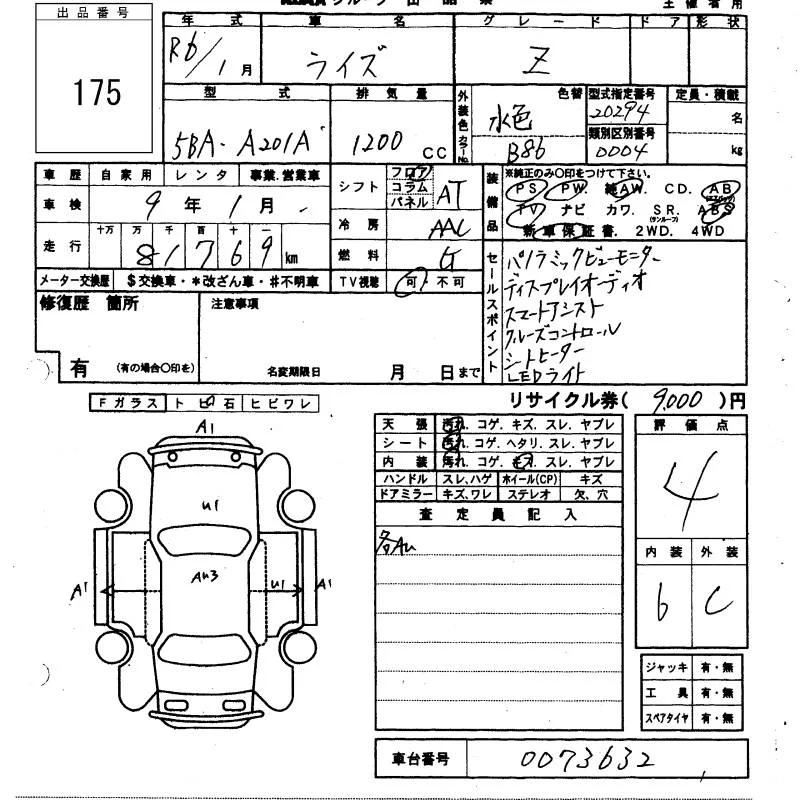 グループ 出品票
主催者用
出品番号
175
年式 車名 グレード ドア 形状
R6/1月 ライズ Z
型式 排気量 外装色 色替 型式指定番号 定員・積載
5BA-A201A 1200cc 水色 20294 名
カラーNo. B86 類別区別番号 0004 kg
車歴 自家用 レンタ 事業.営業車
車検 9年1月
走行 十万 万 千 百 十 一
81769km
シフト フロア コラム パネル AT
冷房 AAC
燃料 G
装備品 ※純正のみ〇印をつけて下さい。
PS. PW. 純AW. CD. AB(エアバッグ)
TV ナビ カワ. SR.(サンルーフ) ABS
新車保証書. 2WD. 4WD
メーター交換歴 $交換車・*改ざん車・#不明車 TV視聴 可・不可
セールスポイント
パノラミックビューモニター
ディスプレイオーディオ
スマートアシスト
クルーズコントロール
シートヒーター
LEDライト
修復歴 箇所 注意事項
有 (有の場合〇印を) 名変期限日 月 日まで
リサイクル券( 9,000 )円
Fガラス トビ石 ヒビワレ
天張 汚れ. コゲ. キズ. スレ. ヤブレ
シート 汚れ. コゲ. ヘタリ. スレ. ヤブレ
内装 汚れ. コゲ. キズ. スレ. ヤブレ
ハンドル スレ、ハゲ ホイール(CP) キズ
ドアミラー キズ、ワレ ステレオ 欠、穴
評価点
4
査定員記入
各AU
内装 外装
b C
A1
U1
AU3
U1
A1
A1
ジャッキ 有・無
工具 有・無
スペアタイヤ 有・無
車台番号 0073632